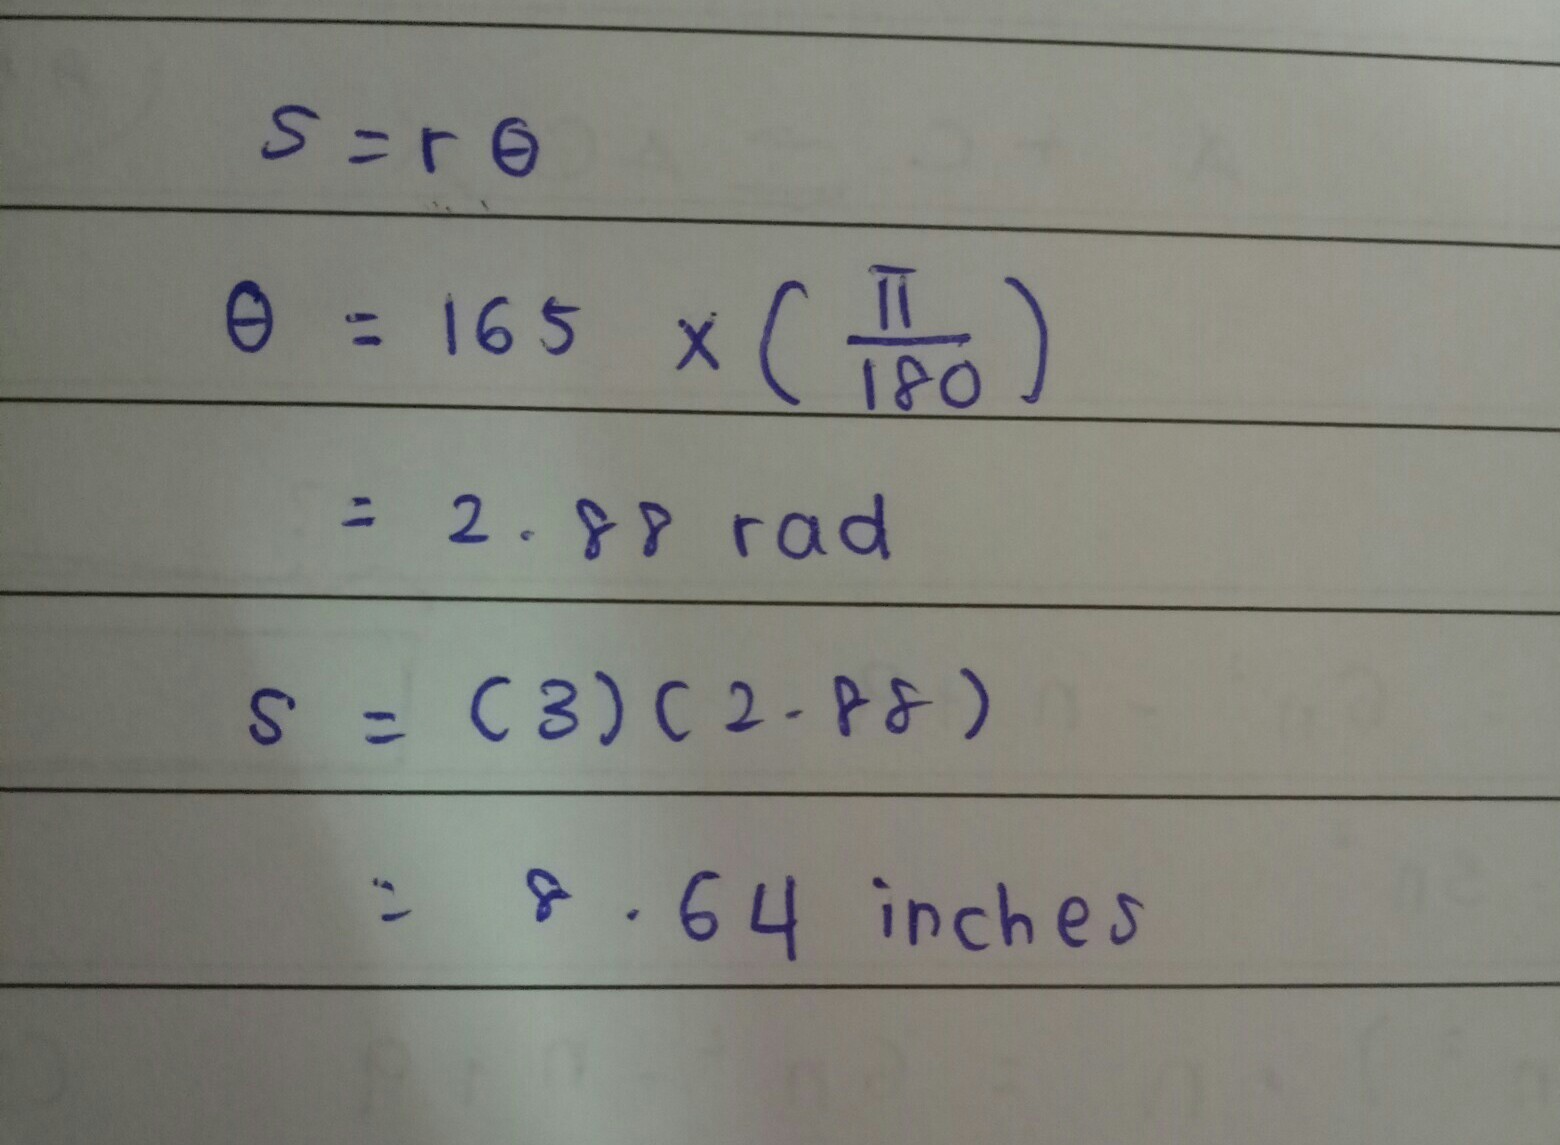 S = r θ
θ = 165 × ( π / 180 )
= 2.88 rad
S = (3) (2.88)
= 8.64 inches